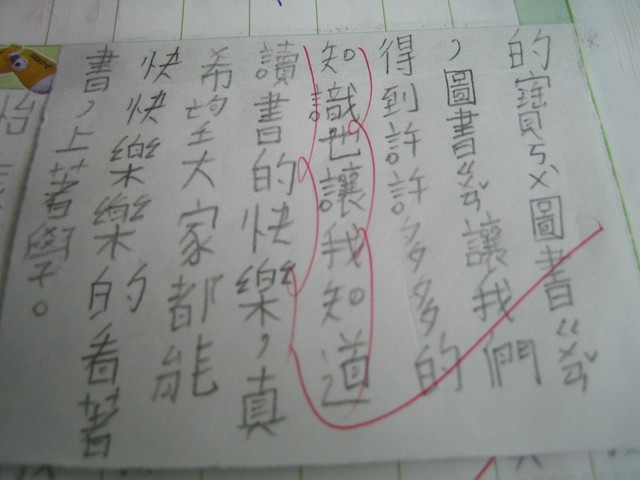 的寶ㄎㄨˋ圖書ㄍㄨㄢˇ
，圖書ㄍㄨㄢˇ讓我們
得到許許多多的
知識也讓我知道
讀書的快樂，真
希望大家都能
快快樂樂的看著
書，上著學。